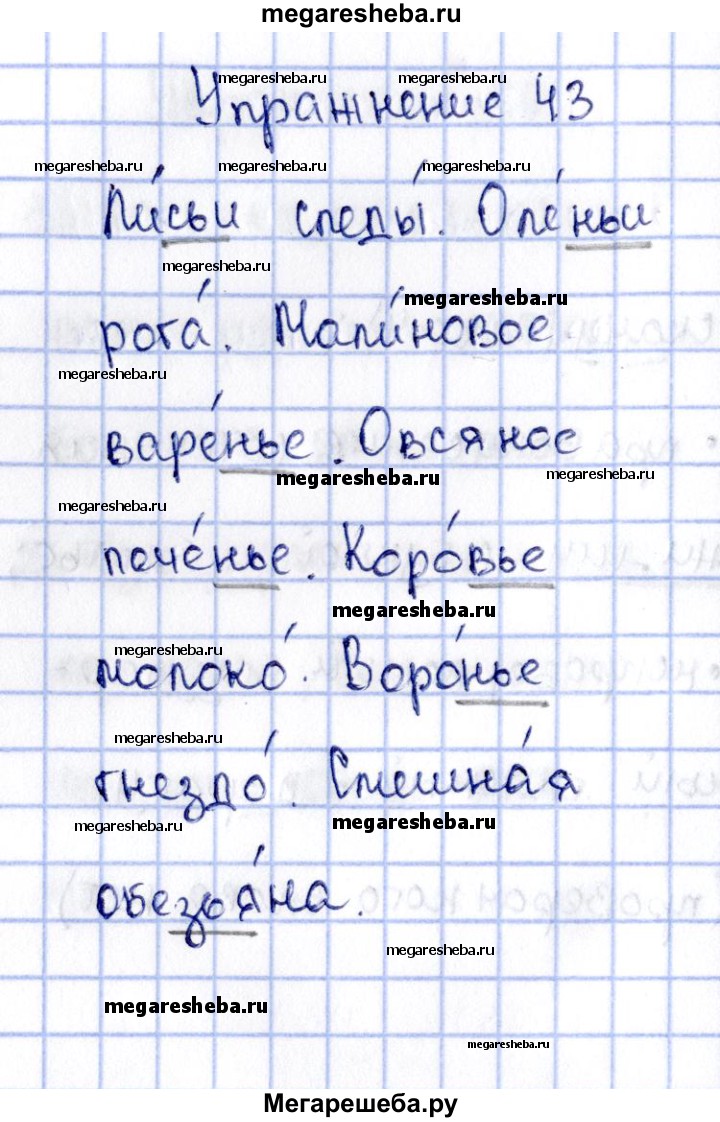 megaresheba.ru
megaresheba.ru megaresheba.ru
Упражнение 43
megaresheba.ru megaresheba.ru megaresheba.ru
Ли́сьи следы́. Оле́ньи
megaresheba.ru
megaresheba.ru
рога́. Мали́новое
megaresheba.ru
варе́нье. Овсяное
megaresheba.ru megaresheba.ru
megaresheba.ru
пече́нье. Коро́вье
megaresheba.ru
megaresheba.ru
молоко́. Воро́нье
megaresheba.ru
гнездо́. Смешна́я
megaresheba.ru megaresheba.ru
обезья́на.
megaresheba.ru
megaresheba.ru
megaresheba.ru
Мегарешеба.ру